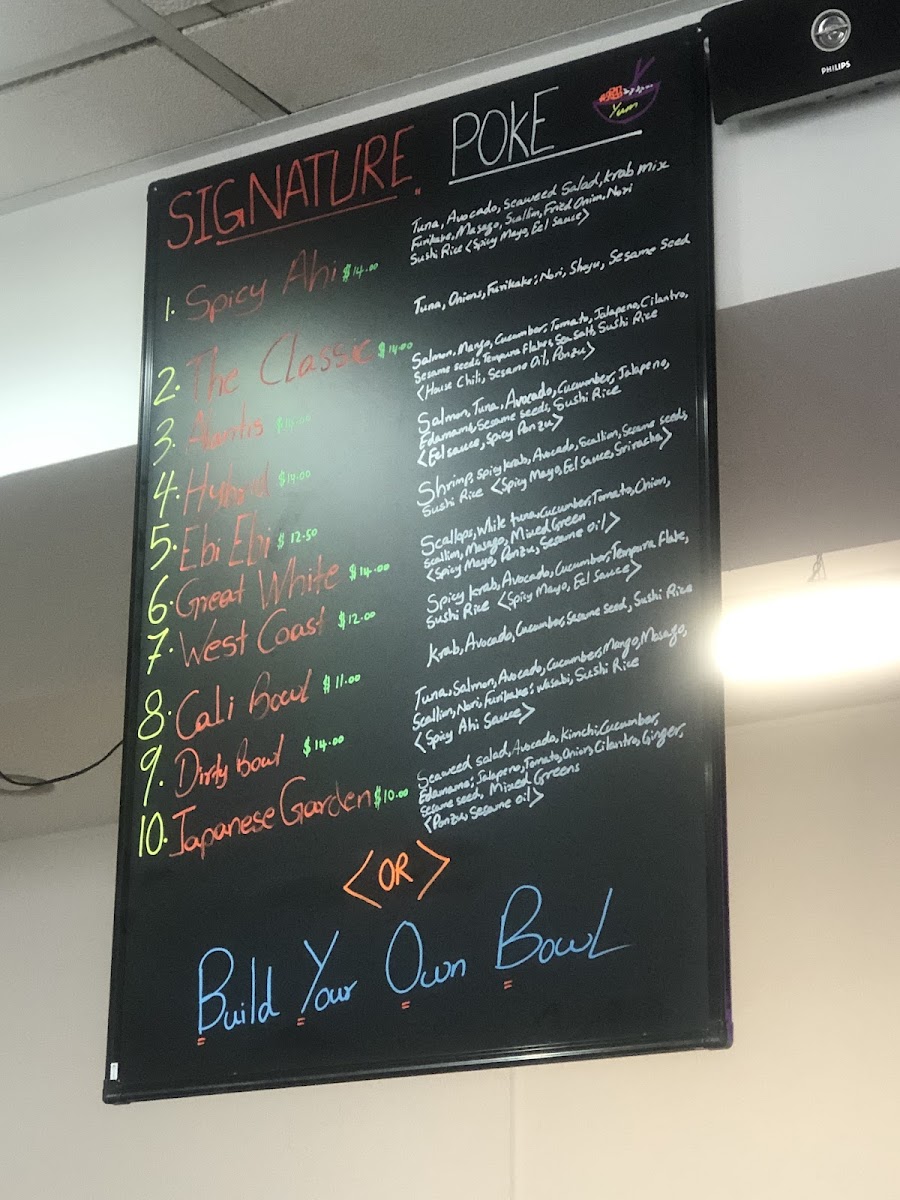 PHILIPS
Yum
SIGNATURE POKE
1. Spicy Ahi $14.00
Tuna, Avocado, Seaweed Salad, Krab mix
Furikake, Masago, Scallion, Fried Onion, Nori
Sushi Rice <Spicy Mayo, Eel Sauce>
2. The Classic $14.00
Tuna, Onions, Furikake; Nori, Shoyu, Sesame Seed
3. Atlantis
Salmon, Mango, Cucumber, Tomato, Jalapeno, Cilantro,
Sesame seeds, Tempura Flakes, Sea Salt, Sushi Rice
<House Chili, Sesame Oil, Ponzu>
4. Hybrid $14.00
Salmon, Tuna, Avocado, Cucumber, Jalapeno,
Edamame, Sesame seeds, Sushi Rice
<Eel sauce, Spicy Ponzu>
5. Ebi Ebi $12.50
Shrimp, Spicy krab, Avocado, Scallion, Sesame seeds,
Sushi Rice <Spicy Mayo, Eel Sauce, Sriracha>
6. Great White $14.00
Scallops, White tuna, Cucumber, Tomato, Onion,
Scallion, Masago, Mixed Green
<Spicy Mayo, Ponzu, Sesame oil>
7. West Coast $12.00
Spicy Krab, Avocado, Cucumber, Tempura Flake,
Sushi Rice <Spicy Mayo, Eel Sauce>
8. Cali Bowl $11.00
Krab, Avocado, Cucumber, Sesame Seed, Sushi Rice
9. Dirty Bowl $14.00
Tuna, Salmon, Avocado, Cucumber, Mango, Masago,
Scallion, Nori, Furikake; Wasabi, Sushi Rice
<Spicy Ahi Sauce>
10. Japanese Garden $10.00
Seaweed salad, Avocado, Kimchi Cucumber,
Edamame; Jalapeno, Tomato, Onion, Cilantro, Ginger,
Sesame seed, Mixed Greens
<Ponzu, Sesame oil>
<OR>
Build Your Own Bowl